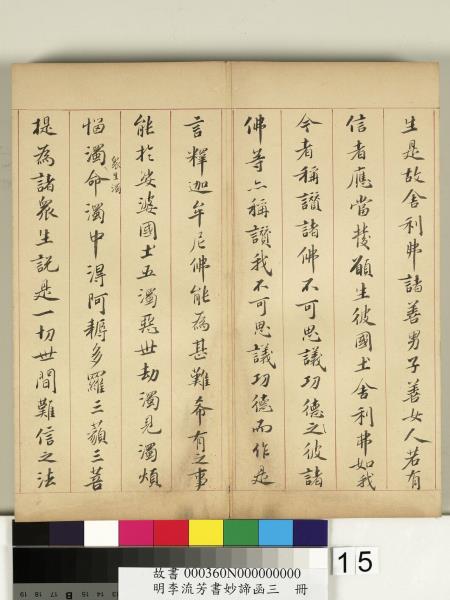 生是故舍利弗諸善男子善女人若有
信者應當發願生彼國土舍利弗如我
今者稱讚諸佛不可思議功德之彼諸
佛等亦稱讚我不可思議功德而作是
言釋迦牟尼佛能為甚難希有之事
能於娑婆國土五濁惡世劫濁見濁煩
惱濁
眾生濁
命濁中得阿耨多羅三藐三菩
提為諸眾生說是一切世間難信之法
15
故書 000360N000000000
明李流芳書妙諦函三 冊